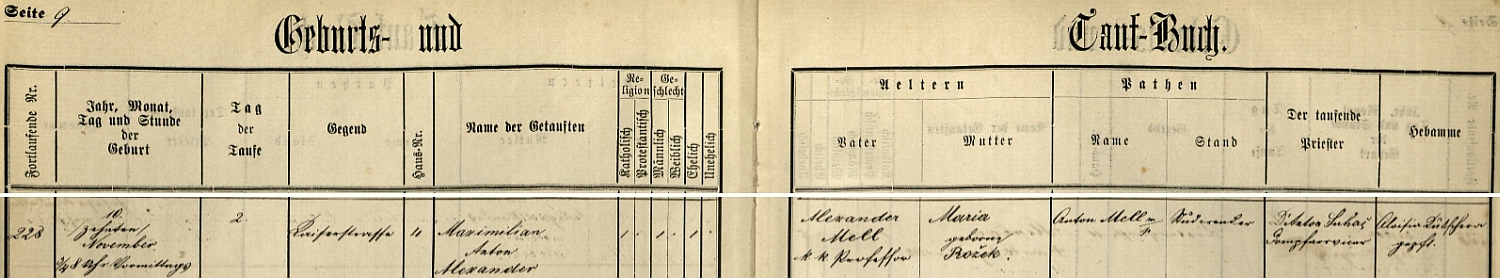 Seite 9
Geburts- und
Tauf-Buch.
Fortlaufende Nr.
Jahr, Monat,
Tag und Stunde
der
Geburt
Tag
der
Taufe
Gegend
Haus-Nr.
Name der Getauften
Re-
ligion
Katholisch
Protestantisch
Ge-
schlecht
Männlich
Weiblich
Ehelich
Unehelich
Aeltern
Vater
Mutter
Pathen
Name
Stand
Der taufende
Priester
Hebamme
228
10.
zehnten
November
3/4 8 Uhr Vormittags
2.
Kaiserstrasse
4
Maximilian
Anton
Alexander
Alexander
Mell
k k Professor
Maria
geboren
Rožek.
Anton Mell
Studirender
Aloisia
gepft.